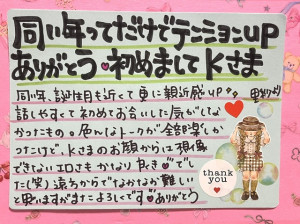 同い年ってだけでテンションUP
ありがとう♥初めましてKさま
同い年、誕生月も近くて更に親近感UP
話しやすくて初めてお会いした気がしな
かったものの。色んなトークが全部楽しか
ったけど、Kさまのお顔からは想像
できないエロさもかなり良き♥でし
た(笑)遠方からでなかなか難しい
と思いますがまたよろしくです♥ありがとう
thank
you